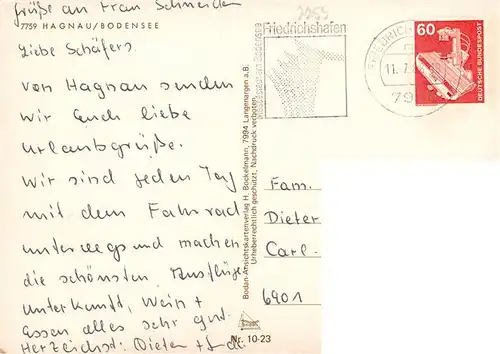 grüße an Frau Schneider
7759 HAGNAU/BODENSEE
Liebe Schäfers,
von Hagnau senden
wir Euch liebe
Urlaubsgrüße.
Wir sind jeden Tag
mit dem Fahrrad
unterwegs und machen
die schönsten Ausflüge
Unterkunft, Wein +
Essen alles sehr gut.
Herzlichst: Dieter +
Bodan-Ansichtskartenverlag H. Bockelmann, 7994 Langenargen a.B.
Urheberrechtlich geschützt. Nachdruck verboten.
Nr. 10-23
Friedrichshafen
FRIEDRICHS
11.7.
79
60
DEUTSCHE BUNDESPOST
Fam.
Dieter
Carl-
6901